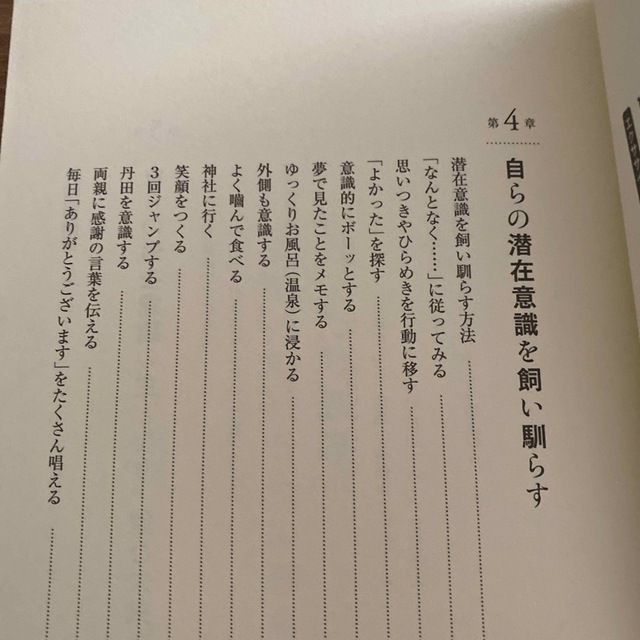 第4章
自らの潜在意識を飼い馴らす
潜在意識を飼い馴らす方法
「なんとなく……」に従ってみる
思いつきやひらめきを行動に移す
「よかった」を探す
意識的にボーッとする
夢で見たことをメモする
ゆっくりお風呂(温泉)に浸かる
外側も意識する
よく噛んで食べる
神社に行く
笑顔をつくる
3回ジャンプする
丹田を意識する
両親に感謝の言葉を伝える
毎日「ありがとうございます」をたくさん唱える